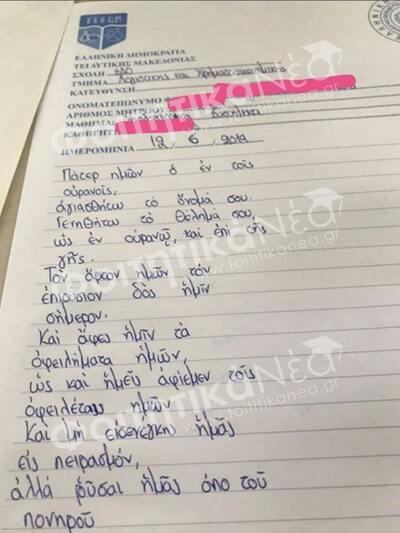 ΕΛΛΗΝΙΚΗ ΔΗΜΟΚΡΑΤΙΑ
ΤΕΙ ΔΥΤΙΚΗΣ ΜΑΚΕΔΟΝΙΑΣ
ΣΧΟΛΗ ΣΔΟ
ΤΜΗΜΑ Λογιστικής και Χρηματοοικονομικής
ΚΑΤΕΥΘΥΝΣΗ
ΟΝΟΜΑΤΕΠΩΝΥΜΟ
ΑΡΙΘΜΟΣ ΜΗΤΡΩΟΥ
ΜΑΘΗΜΑ
ΚΑΘΗΓΗΤ
ΗΜΕΡΟΜΗΝΙΑ 12 6 2019
Πάτερ ημών ὁ ἐν τοῖς
οὐρανοῖς,
ἁγιασθήτω τὸ ὄνομά σου.
Γενηθήτω τὸ θέλημά σου,
ὡς ἐν οὐρανῷ, καὶ ἐπὶ τῆς
γῆς.
Τὸν ἄρτον ἡμῶν τὸν
ἐπιούσιον δὸς ἡμῖν
σήμερον.
Καὶ ἄφες ἡμῖν τὰ
ὀφειλήματα ἡμῶν,
ὡς καὶ ἡμεῖς ἀφίεμεν τοῖς
ὀφειλέταις ἡμῶν
Καὶ μὴ εἰσενέγκῃς ἡμᾶς
εἰς πειρασμόν,
ἀλλά ῥῦσαι ἡμᾶς ἀπὸ τοῦ
πονηροῦ
φοιτητικάΝέα
www.foititikanea.gr